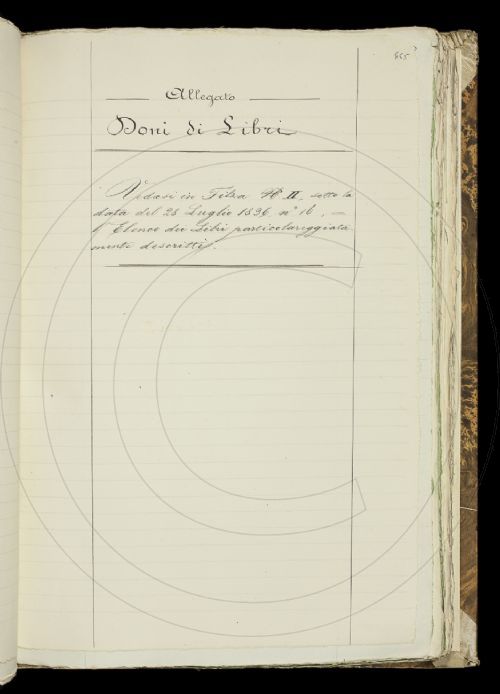 Allegato
Doni di Libri
Vedasi in Filza N II, sotto la
data del 28 Luglio 1896 n° 16, —
l'Elenco dei Libri particolareggiata
mente descritti.